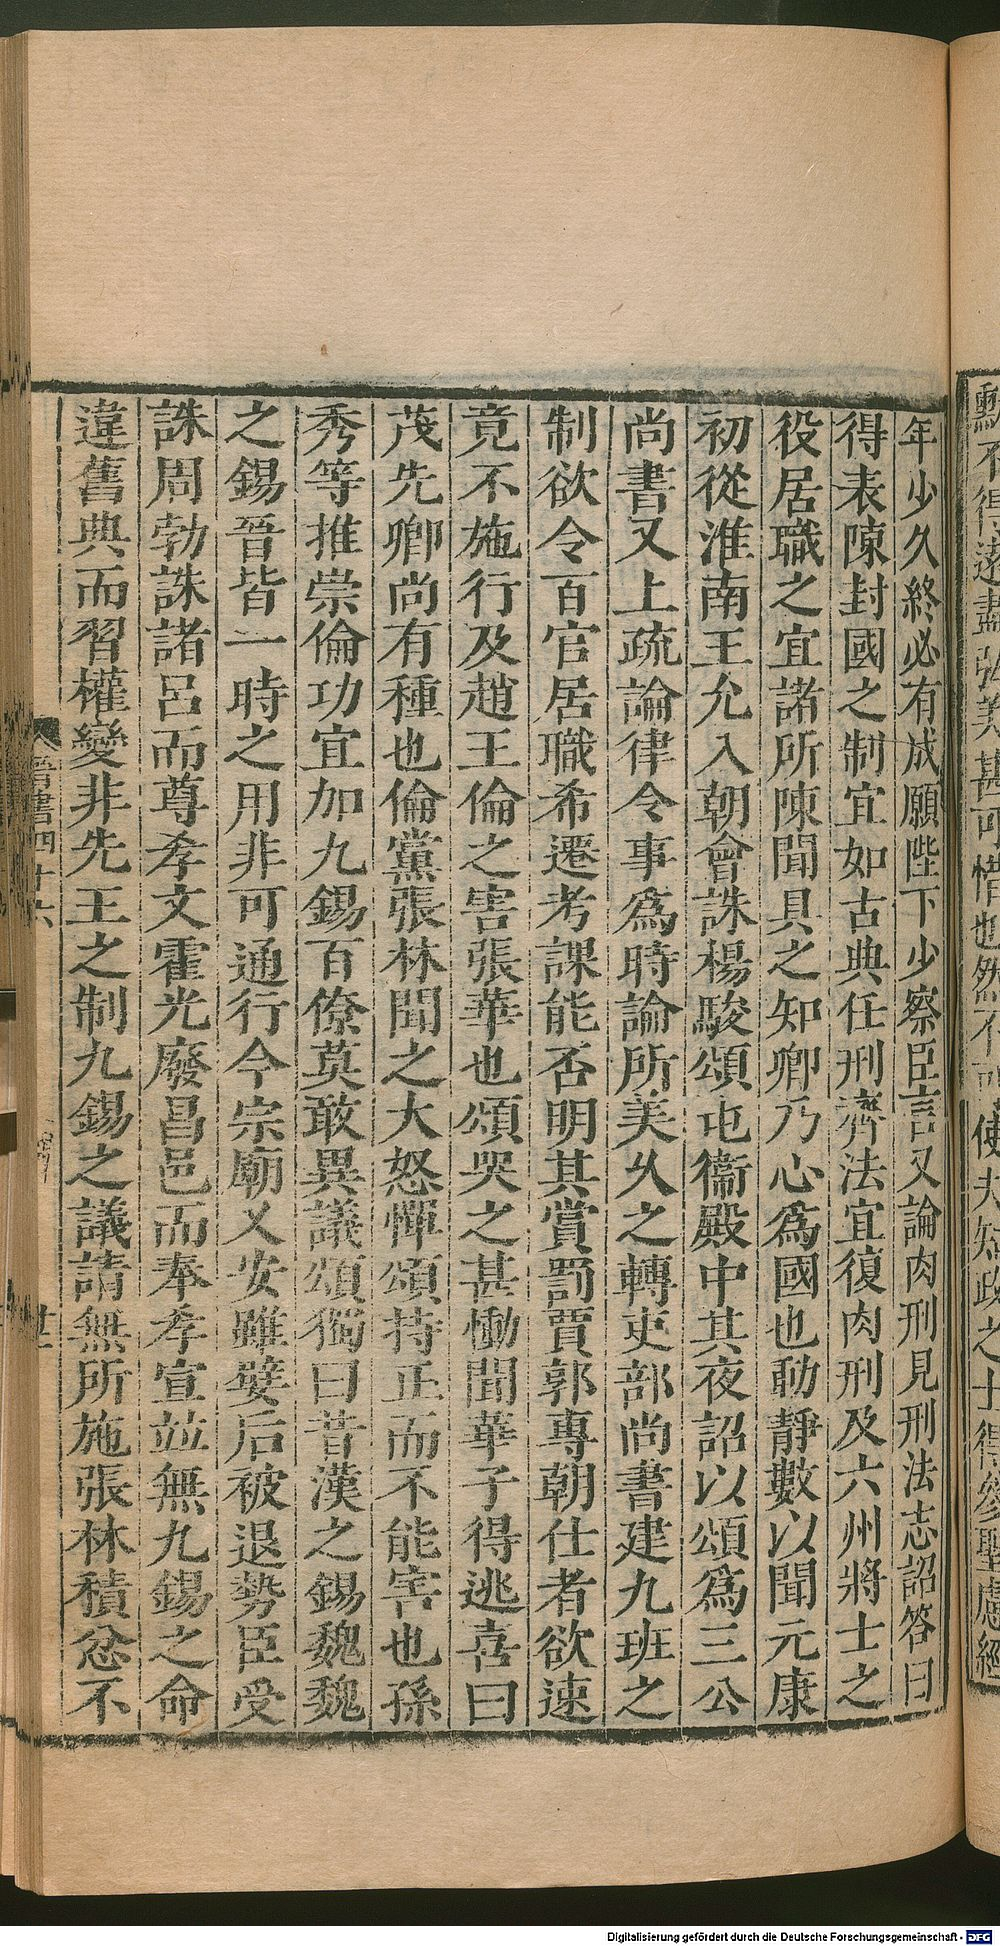 年少久終必有成願陛下少察臣言又論肉刑見刑法志詔答曰
得表陳封國之制宜如古典任刑齊法宜復肉刑及六州將士之
役居職之宜諸所陳聞具之知卿乃心爲國也動靜數以聞元康
初從淮南王允入朝會誅楊駿頌屯衞殿中其夜詔以頌爲三公
尚書又上疏論律令事爲時論所美乆之轉吏部尚書建九班之
制欲令百官居職希遷考課能否明其賞罰賈郭專朝仕者欲速
竟不施行及趙王倫之害張華也頌哭之甚慟聞華子得逃喜曰
茂先卿尚有種也倫黨張林聞之大怒憚頌持正而不能害也孫
秀等推崇倫功宜加九錫百僚莫敢異議頌獨曰昔漢之錫魏魏
之錫晉皆一時之用非可通行今宗廟乂安雖嬖后被退勢臣受
誅周勃誅諸呂而尊孝文霍光廢昌邑而奉孝宣並無九錫之命
違舊典而習權變非先王之制九錫之議請無所施張林積忿不
晉書四十六
Digitalisierung gefördert durch die Deutsche Forschungsgemeinschaft - DFG